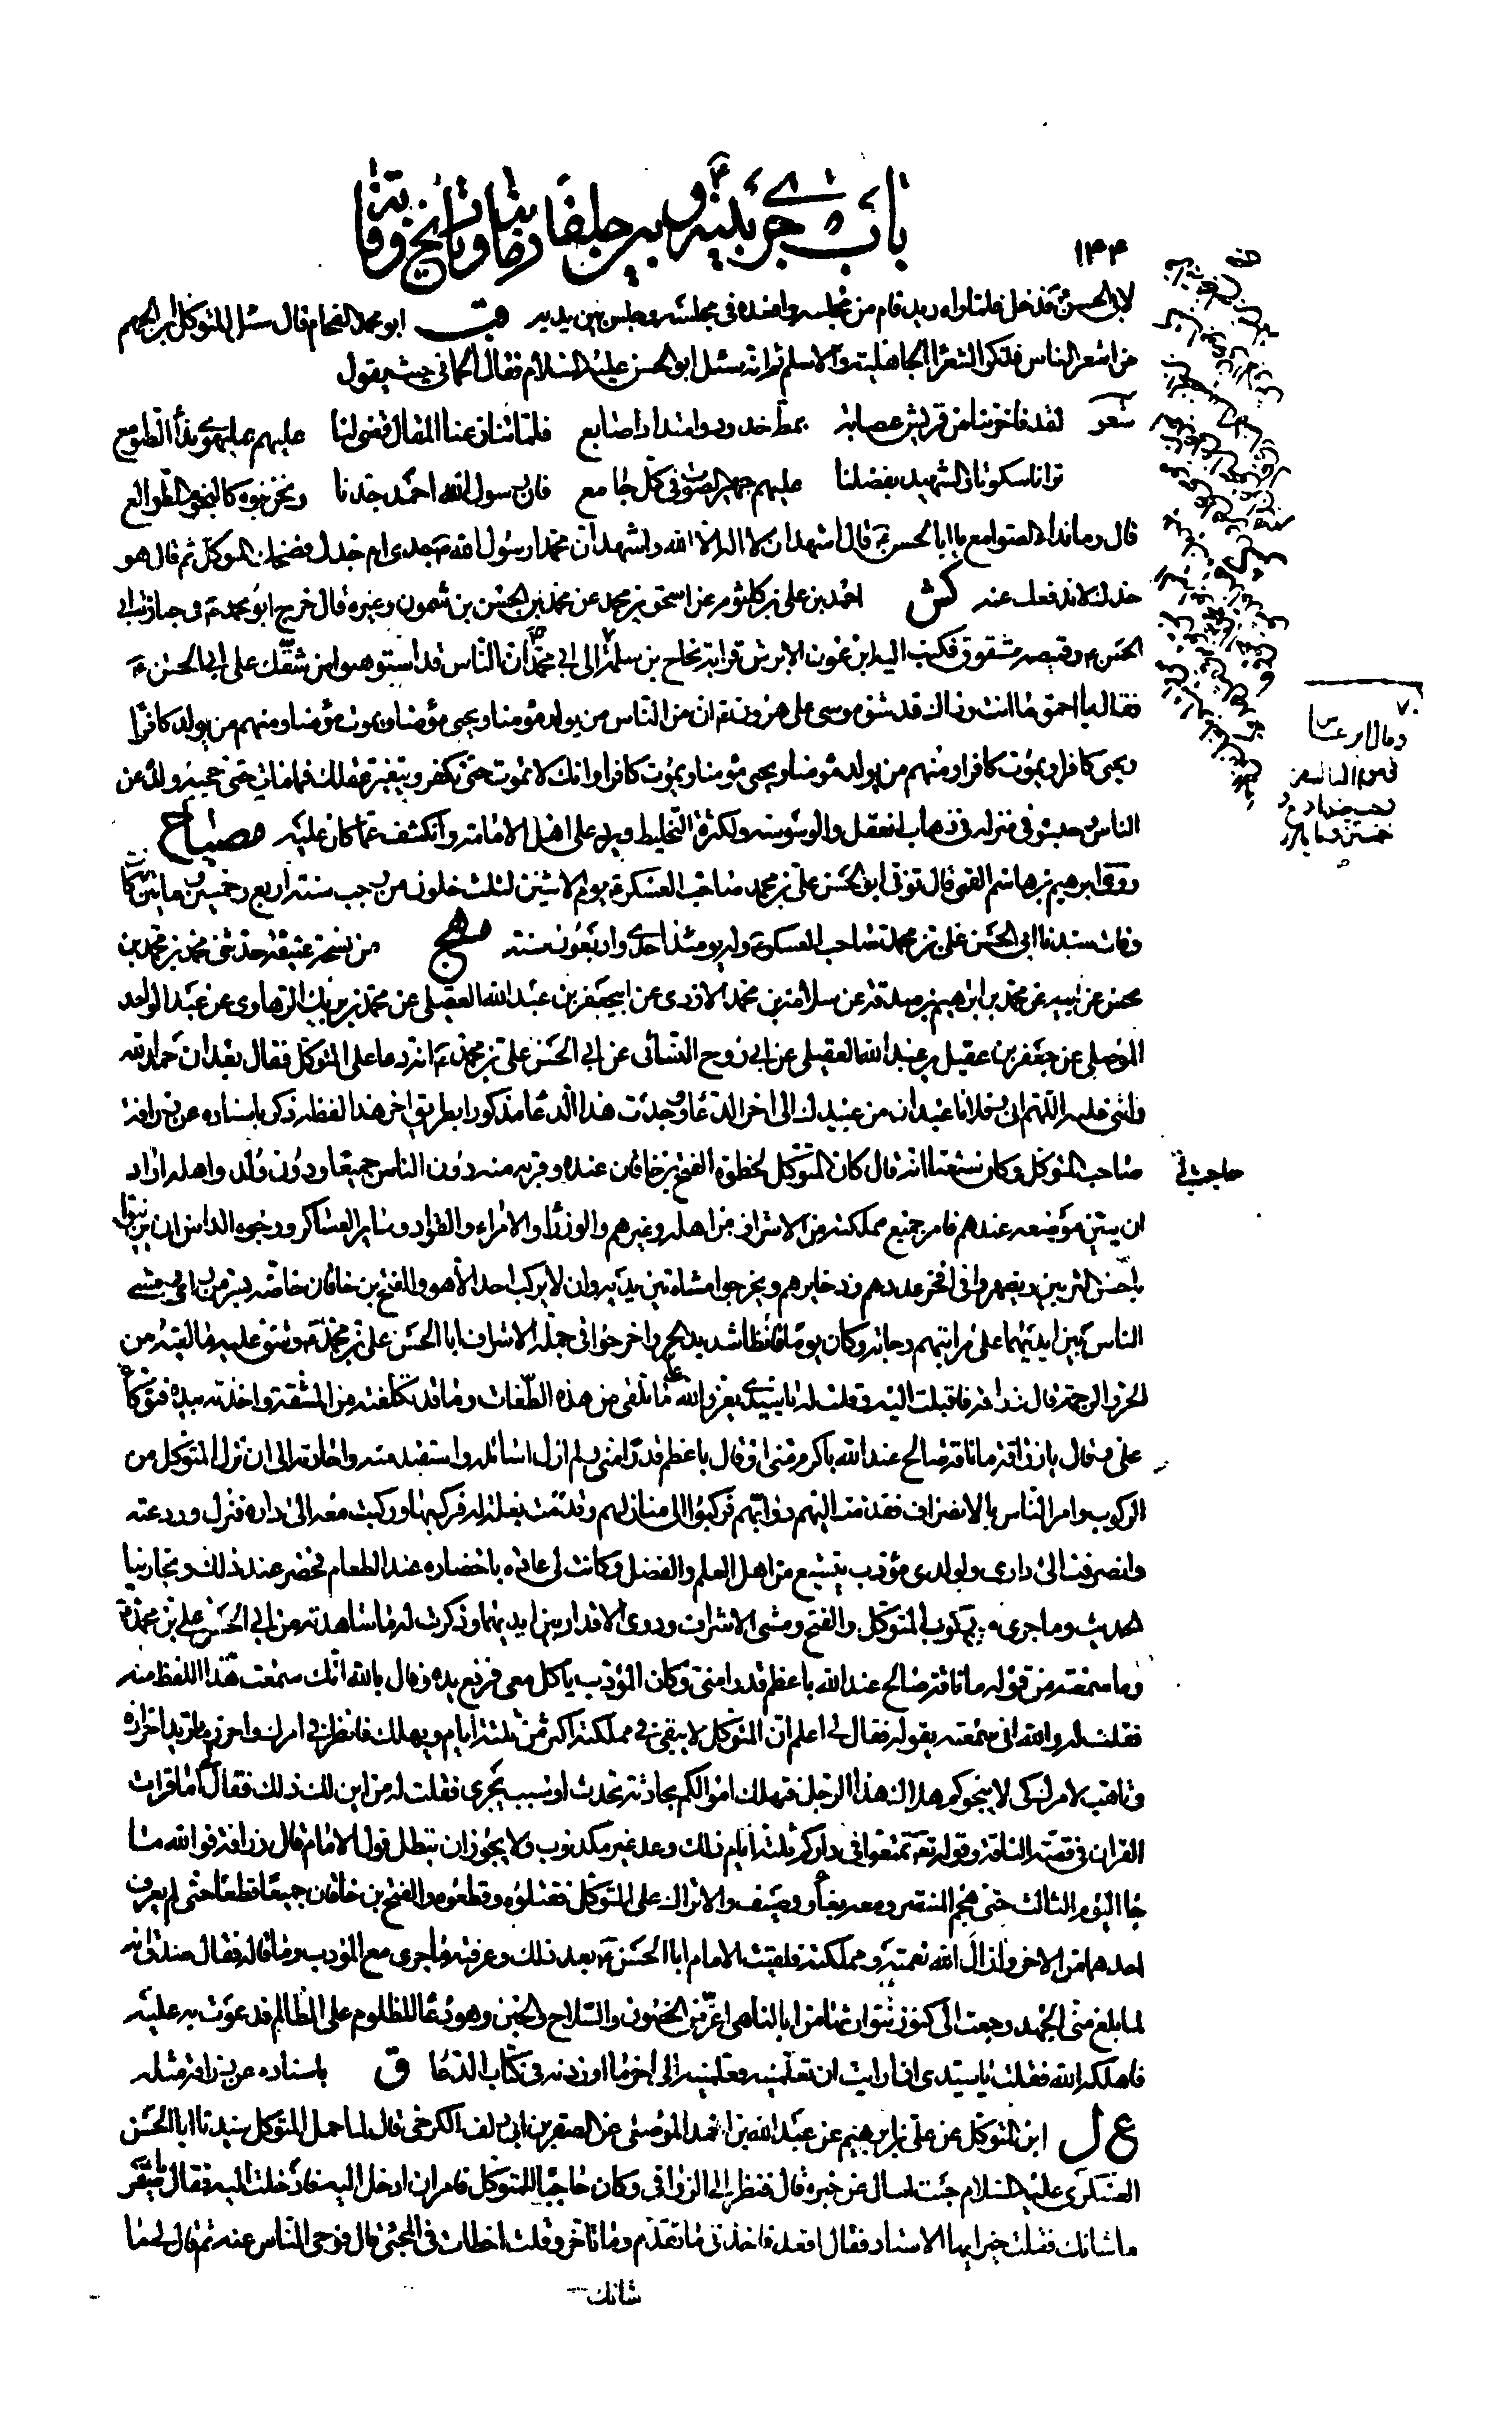 باب ما جرى بينه وبين خلفاء زمانه وتاريخ وفاته
١٤٤
لابي الحسن قد دخل فلما راه قام من مجلسه واقعده في مجلسه وجلس بين يديه قب ابو محمد الفحام قال سئل المتوكل ابن الجهم
من اشعر الناس فذكر الشعراء الجاهلية والاسلام ثم انه سئل ابو الحسن عليه السلام فقال الحماني حيث يقول
شعر لقد فاخرتنا من قريش عصابة بمط خدود وامتداد اصابع فلما تنازعنا المقال قضى لنا عليهم بما يهوى نداء الصوامع
ترانا سكوتا والشهيد بفضلنا عليهم جهير الصوت في كل جامع فان رسول الله احمد جدنا ونحن بنوه كالنجوم الطوالع
قال وما نداء الصوامع يا ابا الحسن قال اشهد ان لا اله الا الله واشهد ان محمدا رسول الله جدي ام جدك فضحك المتوكل ثم قال هو
جدك لا ندفعك عنه كش احمد بن علي بن كلثوم عن اسحق بن محمد عن محمد بن الحسن بن شمون وغيره قال خرج ابو محمد في جنازة ابي
الحسن وقميصه مشقوق فكتب اليه ابن عون الابرش قرابة نجاح بن سلمة الى ابي محمد ان الناس قد استوهنوا من شقك على ابي الحسن
فقال يا احمق ما انت وذاك قد شق موسى على هرون ان من الناس من يولد مؤمنا ويحيى مؤمنا ويموت مؤمنا ومنهم من يولد كافرا
ويحيى كافرا ويموت كافرا ومنهم من يولد مؤمنا ويحيى مؤمنا ويموت كافرا وانك لا تموت حتى تكفر ويتغير عقلك فما مات حتى حجبه ولده عن
الناس وحبسوه في منزله في ذهاب العقل والوسوسة ولكثرة التخليط ويرد على اهل الامامة وانكشف عما كان عليه مصباح
روى ابرهيم بن هاشم القمي قال توفي ابو الحسن علي بن محمد صاحب العسكر يوم الاثنين لثلث خلون من رجب سنة اربع وخمسين ومايتين كانت
وفات سيدنا ابي الحسن علي بن محمد صاحب العسكر وله يومئذ احدى واربعون سنة مهج من نسخة عتيقة حدثني محمد بن محمد بن
محسن عن ابيه عن محمد بن ابرهيم بن صدقة عن سلامة بن محمد الازدي عن ابي جعفر بن عبد الله العقيلي عن محمد بن بريك الرهاوي عن عبد الواحد
الموصلي عن جعفر بن عقيل بن عبد الله العقيلي عن ابي روح النسائي عن ابي الحسن علي بن محمد انه دعا على المتوكل فقال بعد ان حمد الله
واثنى عليه اللهم اني وفلانا عبدان من عبيدك الى اخر الدعاء ووجدت هذا الدعاء مذكورا بطريق اخر هذا لفظه ذكر باسناده عن زرافة
حاجب
صاحب المتوكل وكان شيعيا انه قال كان المتوكل لحظوة الفتح بن خاقان عنده وقربه منه دون الناس جميعا ودون ولده واهله اراد
ان يبين موضعه عندهم فامر جميع مملكته من الاشراف من اهله وغيرهم والوزراء والامراء والقواد وساير العساكر ووجوه الناس ان يزينوا
باحسن التزيين ويظهروا في افخر عددهم وذخايرهم ويخرجوا مشاة بين يديه وان لا يركب احد الا هو والفتح بن خاقان خاصة بسر من راى ومشى
الناس بين ايديهما على مراتبهم رجالة وكان يوما قائظا شديد الحر واخرجوا في جملة الاشراف ابا الحسن علي بن محمد وشق عليه ما لقيه من
الحر والزحمة قال زرافة فاقبلت اليه وقلت له يا سيدي يعز والله علي ما تلقى من هذه الطغات وما قد تكلفته من المشقة واخذت بيده فتوكأ
علي وقال يا زرافة ما ناقة صالح عند الله باكرم مني او قال باعظم قدرا مني ولم ازل اسائله واستفيد منه واحادثه الى ان نزل المتوكل من
الركوب وامر الناس بالانصراف فقدمت اليهم دوابهم فركبوا الى منازلهم وقدمت بغلة له فركبها وركبت معه الى داره فنزل وودعته
وانصرفت الى داري ولولدي مؤدب يتشيع من اهل العلم والفضل وكانت لي عادة باحضاره عند الطعام فحضر عند ذلك وتجارينا
الحديث وما جرى من ركوب المتوكل والفتح ومشي الاشراف وذوي الاقدار بين ايديهما وذكرت له ما شاهدته من ابي الحسن علي بن محمد
وما سمعته من قوله ما ناقة صالح عند الله باعظم قدرا مني وكان المؤدب ياكل معي فرفع يده وقال بالله انك سمعت هذا اللفظ منه
فقلت له والله اني سمعته يقوله فقال لي اعلم ان المتوكل لا يبقى في مملكته اكثر من ثلثة ايام ويهلك فانظر في امرك واحرز ما تريد احرازه
وتاهب لامرك كي لا يفجوكم هلاك هذا الرجل فتهلك اموالكم بحادثة تحدث او سبب يجري فقلت له من اين لك ذلك فقال اما قرات
القران في قصة الناقة وقوله تمتعوا في داركم ثلثة ايام ذلك وعد غير مكذوب ولا يجوز ان يبطل قول الامام قال زرافة فوالله ما
جاء اليوم الثالث حتى هجم المنتصر ومعه بغا ووصيف والاتراك على المتوكل فقتلوه وقطعوه والفتح بن خاقان جميعا قطعا حتى لم يعرف
احدهما من الاخر وازال الله نعمته ومملكته فلقيت الامام ابا الحسن بعد ذلك وعرفته ما جرى مع المؤدب وما قاله فقال صدق انه
لما بلغ مني الجهد رجعت الى كنوز نتوارثها من ابائنا هي اعز من الحصون والسلاح والجنن وهو دعاء المظلوم على الظالم فدعوت به عليه
فاهلكه الله فقلت يا سيدي ان رايت ان تعلمنيه فعلمنيه الى اخر ما اوردنه في كتاب الدعاء ق باسناده عن زرافة مثله
ع ل ابن المتوكل عن علي بن ابرهيم عن عبد الله بن احمد الموصلي عن الصقر بن ابي دلف الكرخي قال لما حمل المتوكل سيدنا ابا الحسن
العسكري عليه السلام جئت اسال عن خبره قال فنظر الى الزرافي وكان حاجبا للمتوكل فامر ان ادخل اليه فادخلت اليه فقال يا صقر
ما شانك فقلت خير ايها الاستاد فقال اقعد فاخذني ما تقدم وما تاخر وقلت اخطات في المجئ قال فوحى الناس عنه ثم قال لي ما
شانك